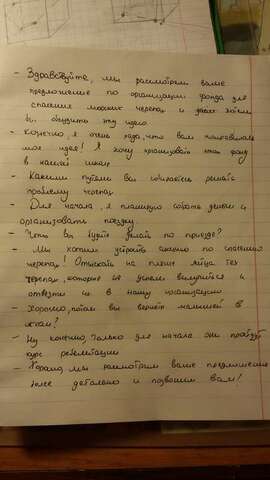 - Здравствуйте, мы рассмотрели ваше
предложение по организации фонда для
спасения морских черепах и хотели
бы обсудить эту идею
- Конечно, я очень рада, что вам понравилась
моя идея! Я хочу организовать этот фонд
в нашей школе
- Какими путями вы собираетесь решать
проблему черепах
- Для начала, я планирую собрать деньги и
организовать поездку.
- Что вы будете делать по приезде?
- Мы хотим устроить акцию по спасению
черепах! Отыскать на пляже яйца тех
черепах, которые не успели вылупиться и
отвезти их в нашу организацию
- Хорошо, потом вы вернёте малышей в
океан?
- Ну конечно, только для начала они пройдут
курс реабелитации
- Хорошо, мы рассмотрим ваше предложение
более детально и позвоним вам!